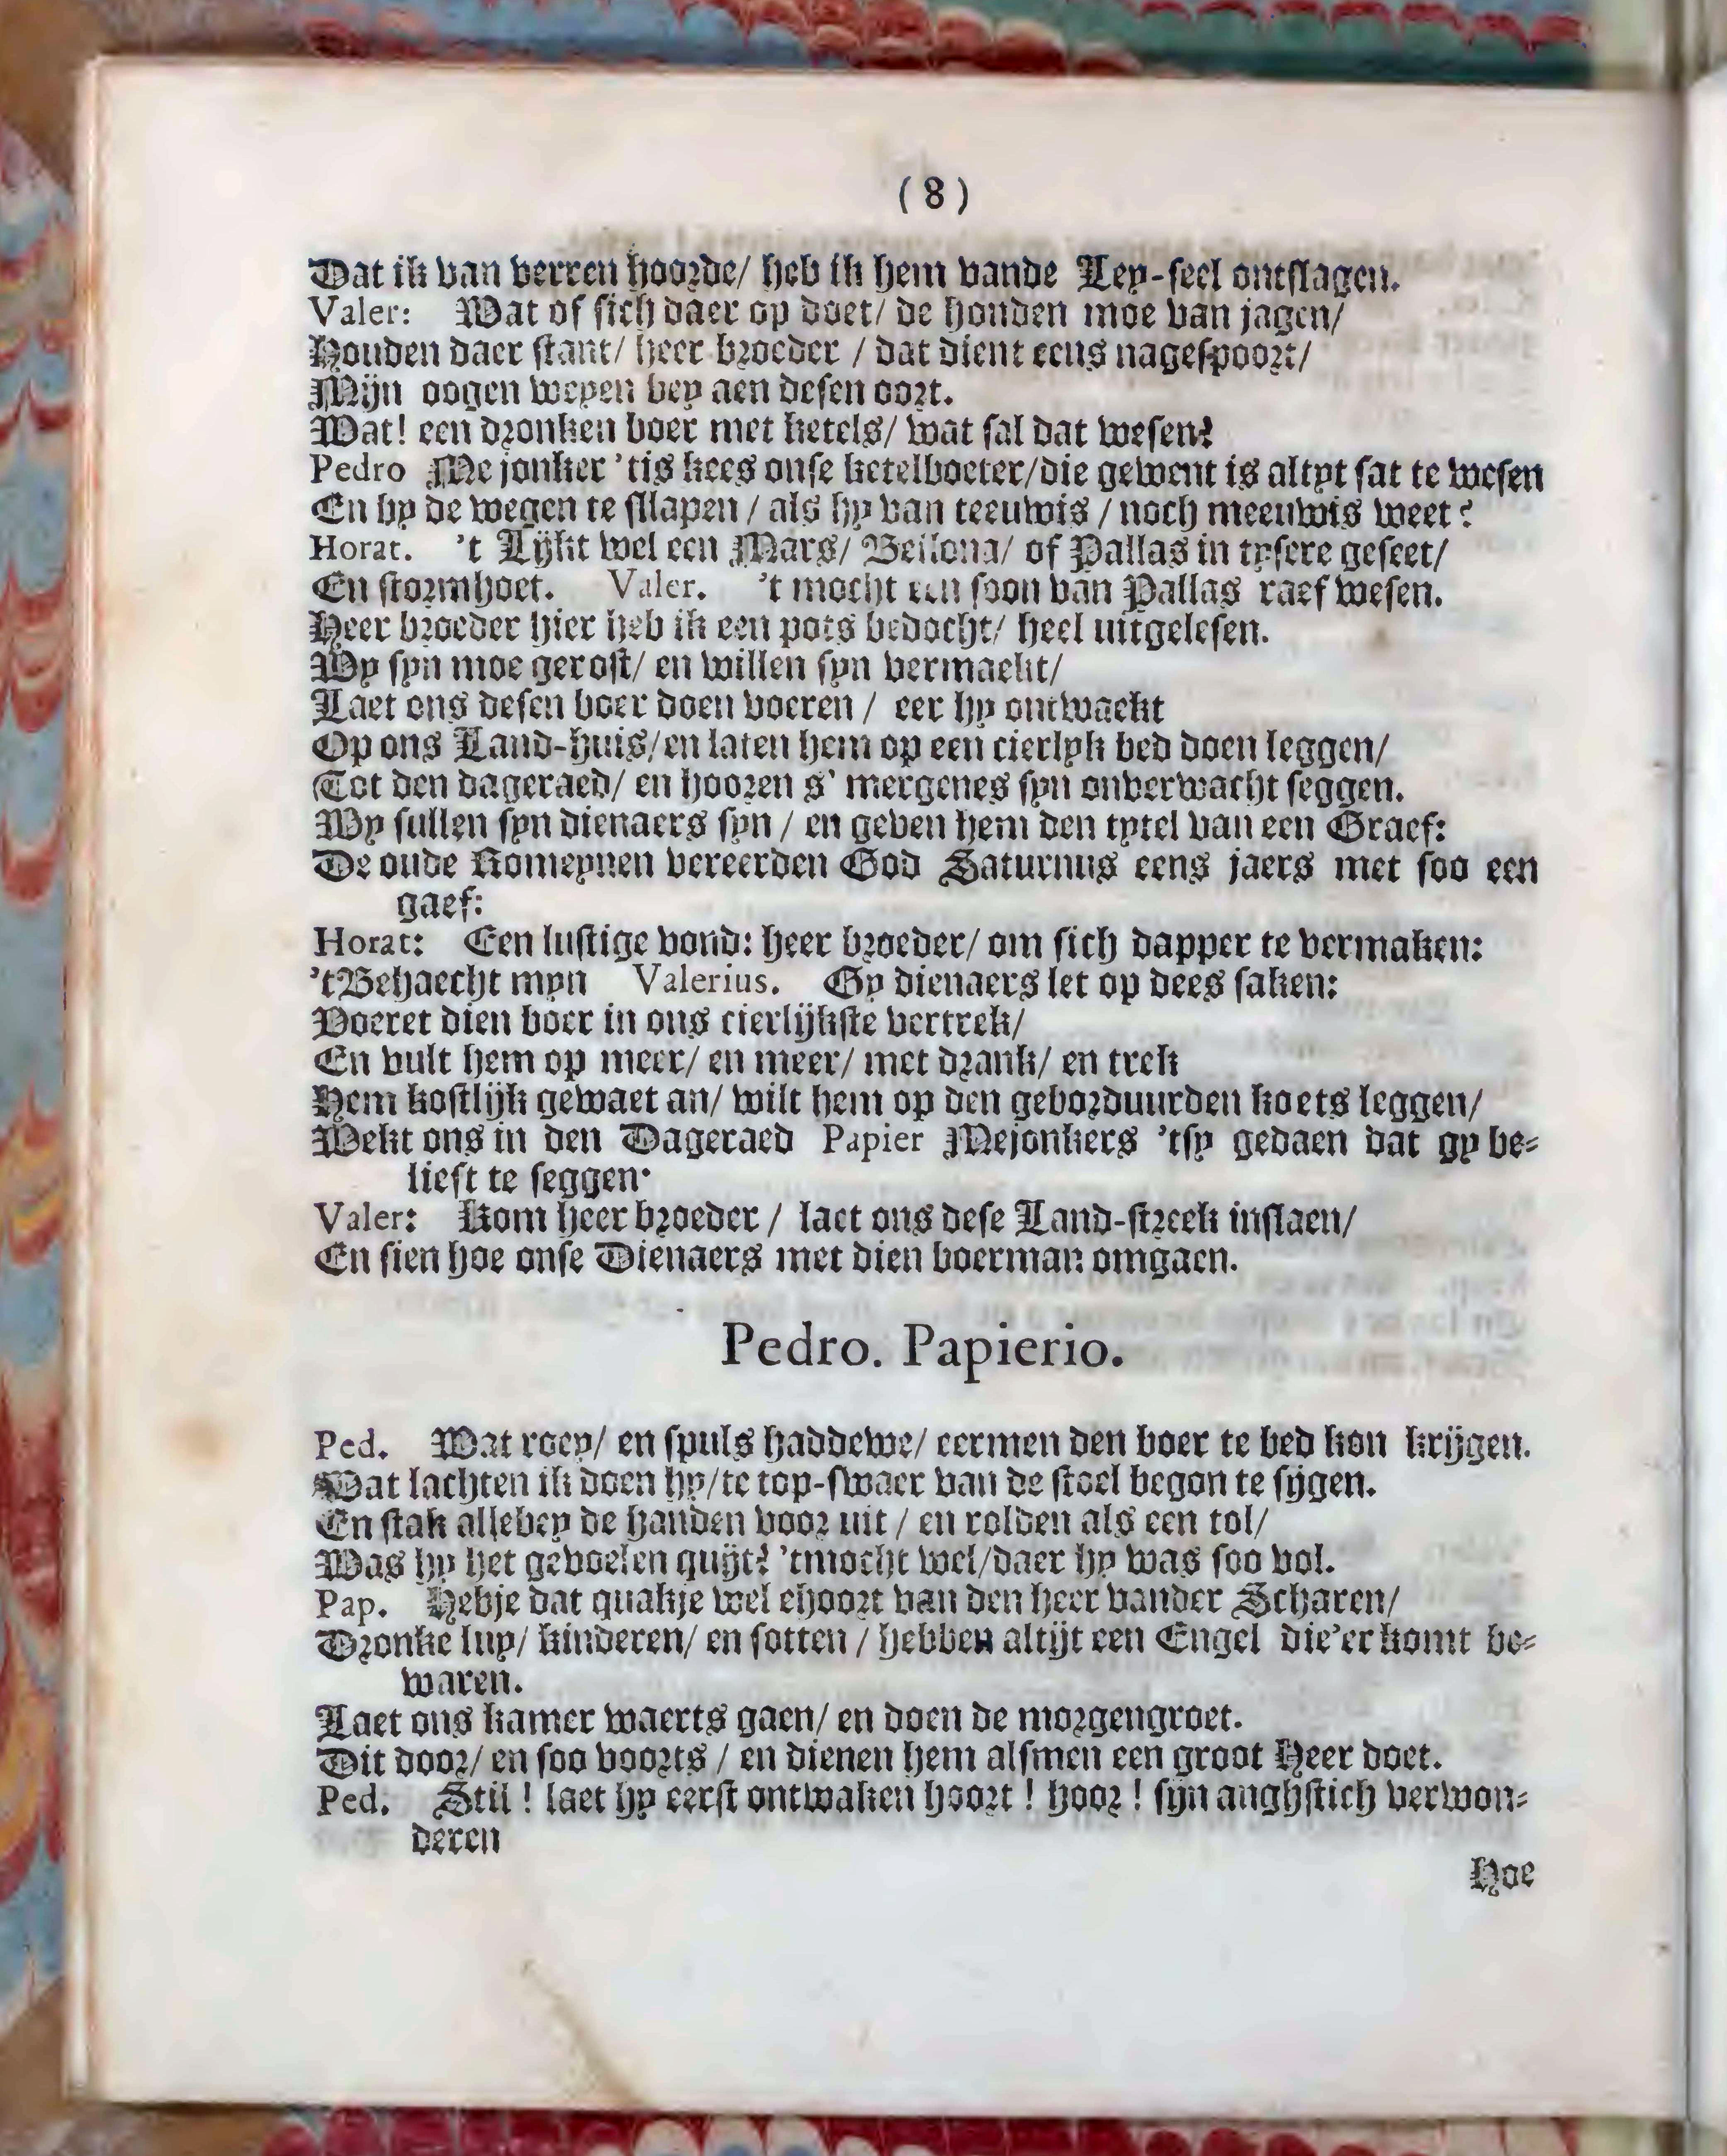 (8)
Dat ik van verren hoorde/ heb ik hem vande Ley-seel ontslagen.
Valer: Wat of sich daer op doet/ de honden moe van jagen/
Houden daer stant/ heer broeder / dat dient eens nagespoort/
Mijn oogen weyen bey aen desen oort.
Wat! een dronken boer met ketels/ wat sal dat wesen?
Pedro Me jonker 'tis kees onse ketelboeter/die gewent is altyt sat te wesen
En by de wegen te sllapen / als hy van teeuwis / noch meeuwis weet?
Horat. 't Lijkt wel een Mars/ Bellona/ of Pallas in tysere geseet/
En stormhoet. Valer. 't mocht een soon van Pallas raef wesen.
Heer broeder hier heb ik een pots bedocht/ heel uitgelesen.
Wy syn moe gerost/ en willen syn vermaekt/
Laet ons desen boer doen voeren / eer hy ontwaekt
Op ons Land-huis/en laten hem op een cierlyk bed doen leggen/
Tot den dageraed/ en hooren s' mergenes syn onverwacht seggen.
Wy sullen syn dienaers syn / en geven hem den tytel van een Graef:
De oude Romeynen vereerden God Saturnus eens jaers met soo een
gaef:
Horat: Een lustige vond: heer broeder/ om sich dapper te vermaken:
'tBehaecht myn Valerius. Gy dienaers let op dees saken:
Voeret dien boer in ons cierlijkste vertrek/
En vult hem op meer/ en meer/ met drank/ en trek
Hem kostlijk gewaet an/ wilt hem op den geborduurden koets leggen/
Wekt ons in den Dageraed Papier Mejonkers 'tsy gedaen dat gy be-
lieft te seggen·
Valer: Kom heer broeder / laet ons dese Land-streek inslaen/
En sien hoe onse Dienaers met dien boerman omgaen.
Pedro. Papierio.
Ped. Wat roey/ en spuls haddewe/ eermen den boer te bed kon krijgen.
Wat lachten ik doen hy/te top-swaer van de stoel begon te sijgen.
En stak allebey de handen voor uit / en rolden als een tol/
Was hy het gevoelen quijt? 'tmocht wel/daer hy was soo vol.
Pap. Hebje dat quakje wel ehoort van den heer vander Scharen/
Dronke luy/ kinderen/ en sotten / hebben altijt een Engel die'er komt be-
waren.
Laet ons kamer waerts gaen/ en doen de morgengroet.
Dit door/ en soo voorts / en dienen hem alsmen een groot Heer doet.
Ped. Stil ! laet hy eerst ontwaken hoort ! hoor ! sijn anghstich verwon-
deren
Hoe